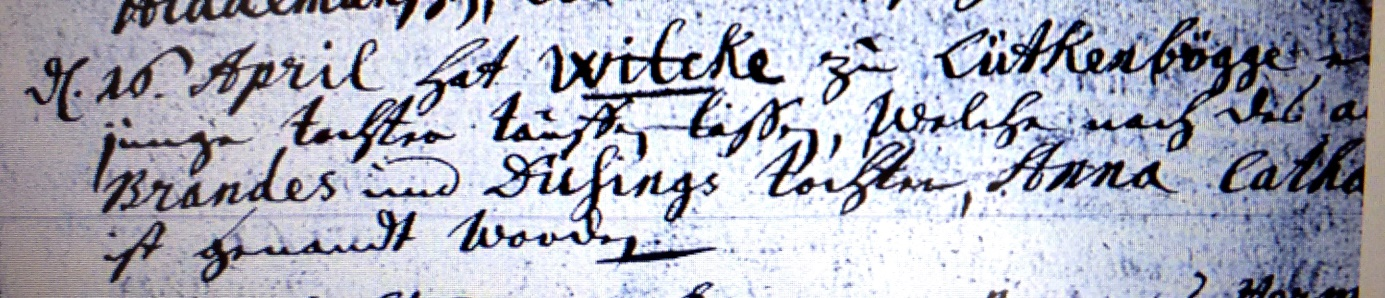 d. 16. April hat Witcke zu Lütkenbögge
junge tochter täuffen lassen, Welche nach des
Brandes und Düsings tochter, Anna Catha
ist genandt worden